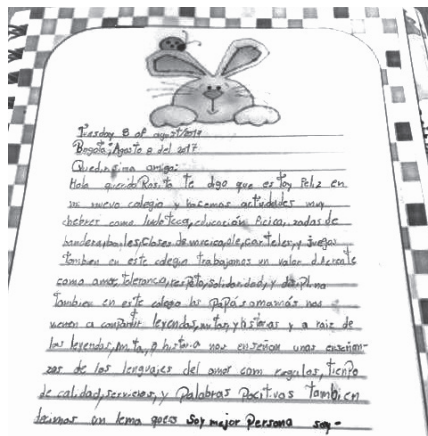 Tuesday 8 of agust/2017
Bogotá; Agosto 8 del 2017
Queridisima amiga:
Hola querida Rosita te digo que estoy Feliz en
mi nuevo colegio y hacemos actividades muy
chebres como ludoteca, educación fisica, izadas de
bandera, bailes, clases de musica, ole, carteler, y juegos
tambien en este colegio trabajamos un valor
como amor, tolerancia, respeto, solidaridad, y disiplina
tambien en este colegio los papás o mamás nos
vienen a compartir leyendas, mitos, y historias y a raiz de
las leyendas, mito, o historia nos enseñan unas enseñan-
zas de los lenguajes del amor como regalos, tienpo
de calidad, servicios, y palabras pocitivas tambien
tenimos un lema que es soy mejor persona soy-